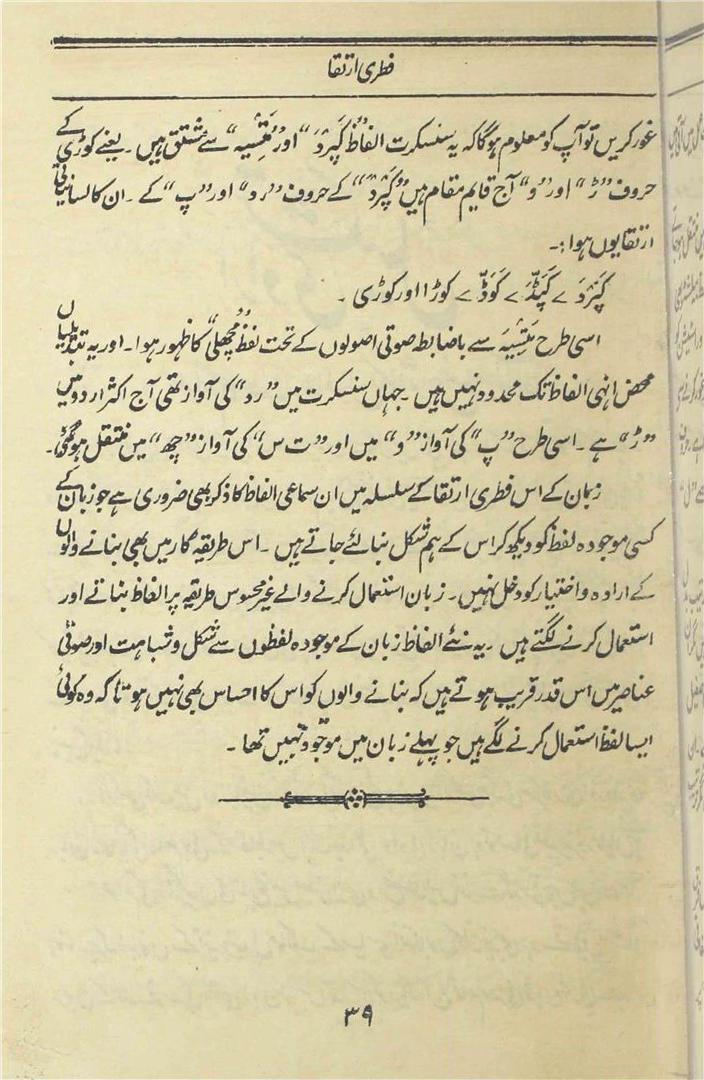 فطری ارتقا
غور کریں تو آپ کو معلوم ہوگا کہ یہ سنسکرت الفاظ ”کَپَرْدَ“ اور ”مَتِسْیہ“ سے مشتق ہیں ۔ یعنے کوڑی کے
حروف ”ڑ“ اور ”و“ آج قایم مقام ہیں ”کَپَرْدَ“ کے حروف ”رد“ اور ”پ“ کے ۔ ان کا لسانیاتی
ارتقا یوں ہوا :۔
کَپَرْدَ > کَپَڈَّ > کَوَڈَّ > کوڑا اور کوڑی ۔
اسی طرح مَتِسْیَہ سے باضابطہ صوتی اصولوں کے تحت لفظ ”مچھلی“ کا ظہور ہوا ۔ اور یہ تبدیلیاں
محض انہی الفاظ تک محدود نہیں ہیں ۔ جہاں سنسکرت میں ”رد“ کی آواز تھی آج اکثر اردو میں
”ڑ“ ہے ۔ اسی طرح ”پ“ کی آواز ”و“ میں اور ”ت س“ کی آواز ”چھ“ میں منتقل ہوگئی ۔
زبان کے اس فطری ارتقا کے سلسلہ میں ان سماعی الفاظ کا ذکر بھی ضروری ہے جو زبان کے
کسی موجودہ لفظ کو دیکھ کر اس کے ہم شکل بنالئے جاتے ہیں ۔ اس طریقۂ کار میں بھی بنانے والوں
کے ارادہ و اختیار کو دخل نہیں ۔ زبان استعمال کرنے والے غیر محسوس طریقہ پر الفاظ بناتے اور
استعمال کرنے لگتے ہیں ۔ یہ نئے الفاظ زبان کے موجودہ لفظوں سے شکل و شباہت اور صوتی
عناصر میں اس قدر قریب ہوتے ہیں کہ بنانے والوں کو اس کا احساس بھی نہیں ہوتا کہ وہ کوئی
ایسا لفظ استعمال کرنے لگے ہیں جو پہلے زبان میں موجود نہیں تھا ۔
۳۹